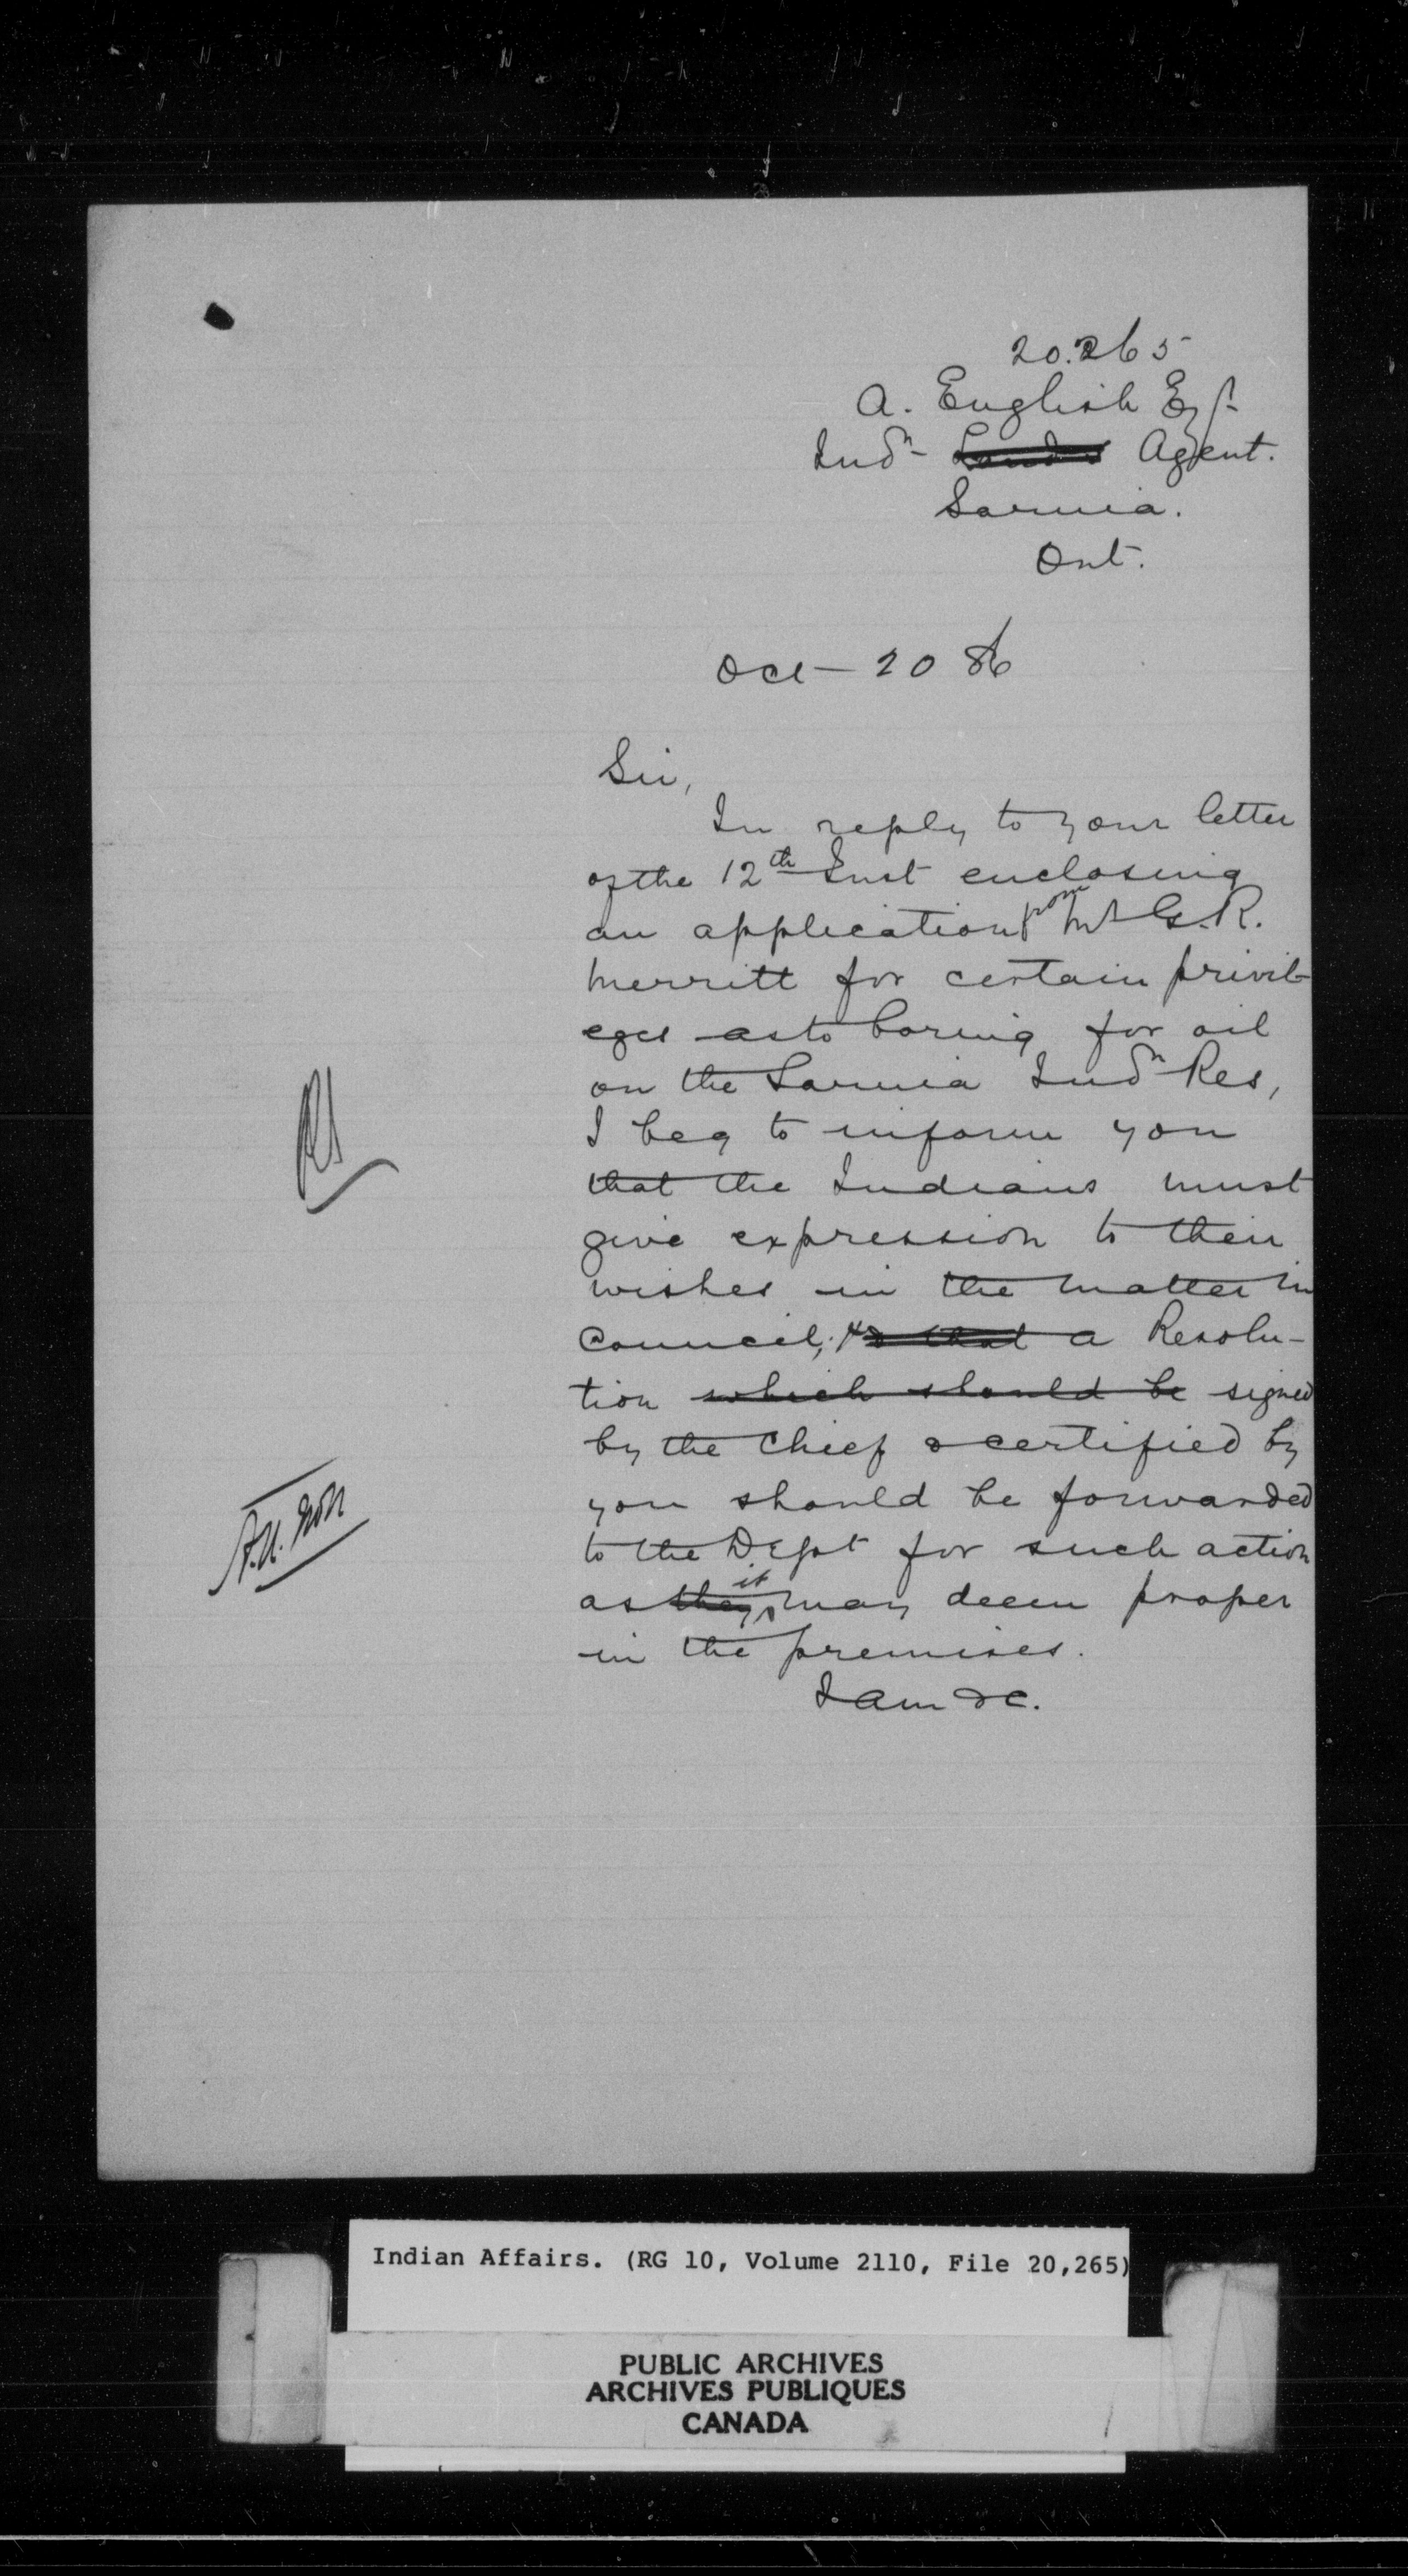 20.265
A. English Esq.
Indn Lands Agent.
Sarnia.
Ont.
Oct 20 86
Sir,
In reply to your letter
of the 12th Inst enclosing
an application from Mr G. R.
Merritt for certain privil-
eges as to boring for oil
on the Sarnia Indn Res,
I beg to inform you
that the Indians must
give expression to their
wishes in the matter in
Council; & that a Resolu-
tion which should be signed
by the Chief & certified by
you should be forwarded
to the Dept for such action
as they it may deem proper
in the premises.
I am &c.
Indian Affairs. (RG 10, Volume 2110, File 20,265)
PUBLIC ARCHIVES
ARCHIVES PUBLIQUES
CANADA